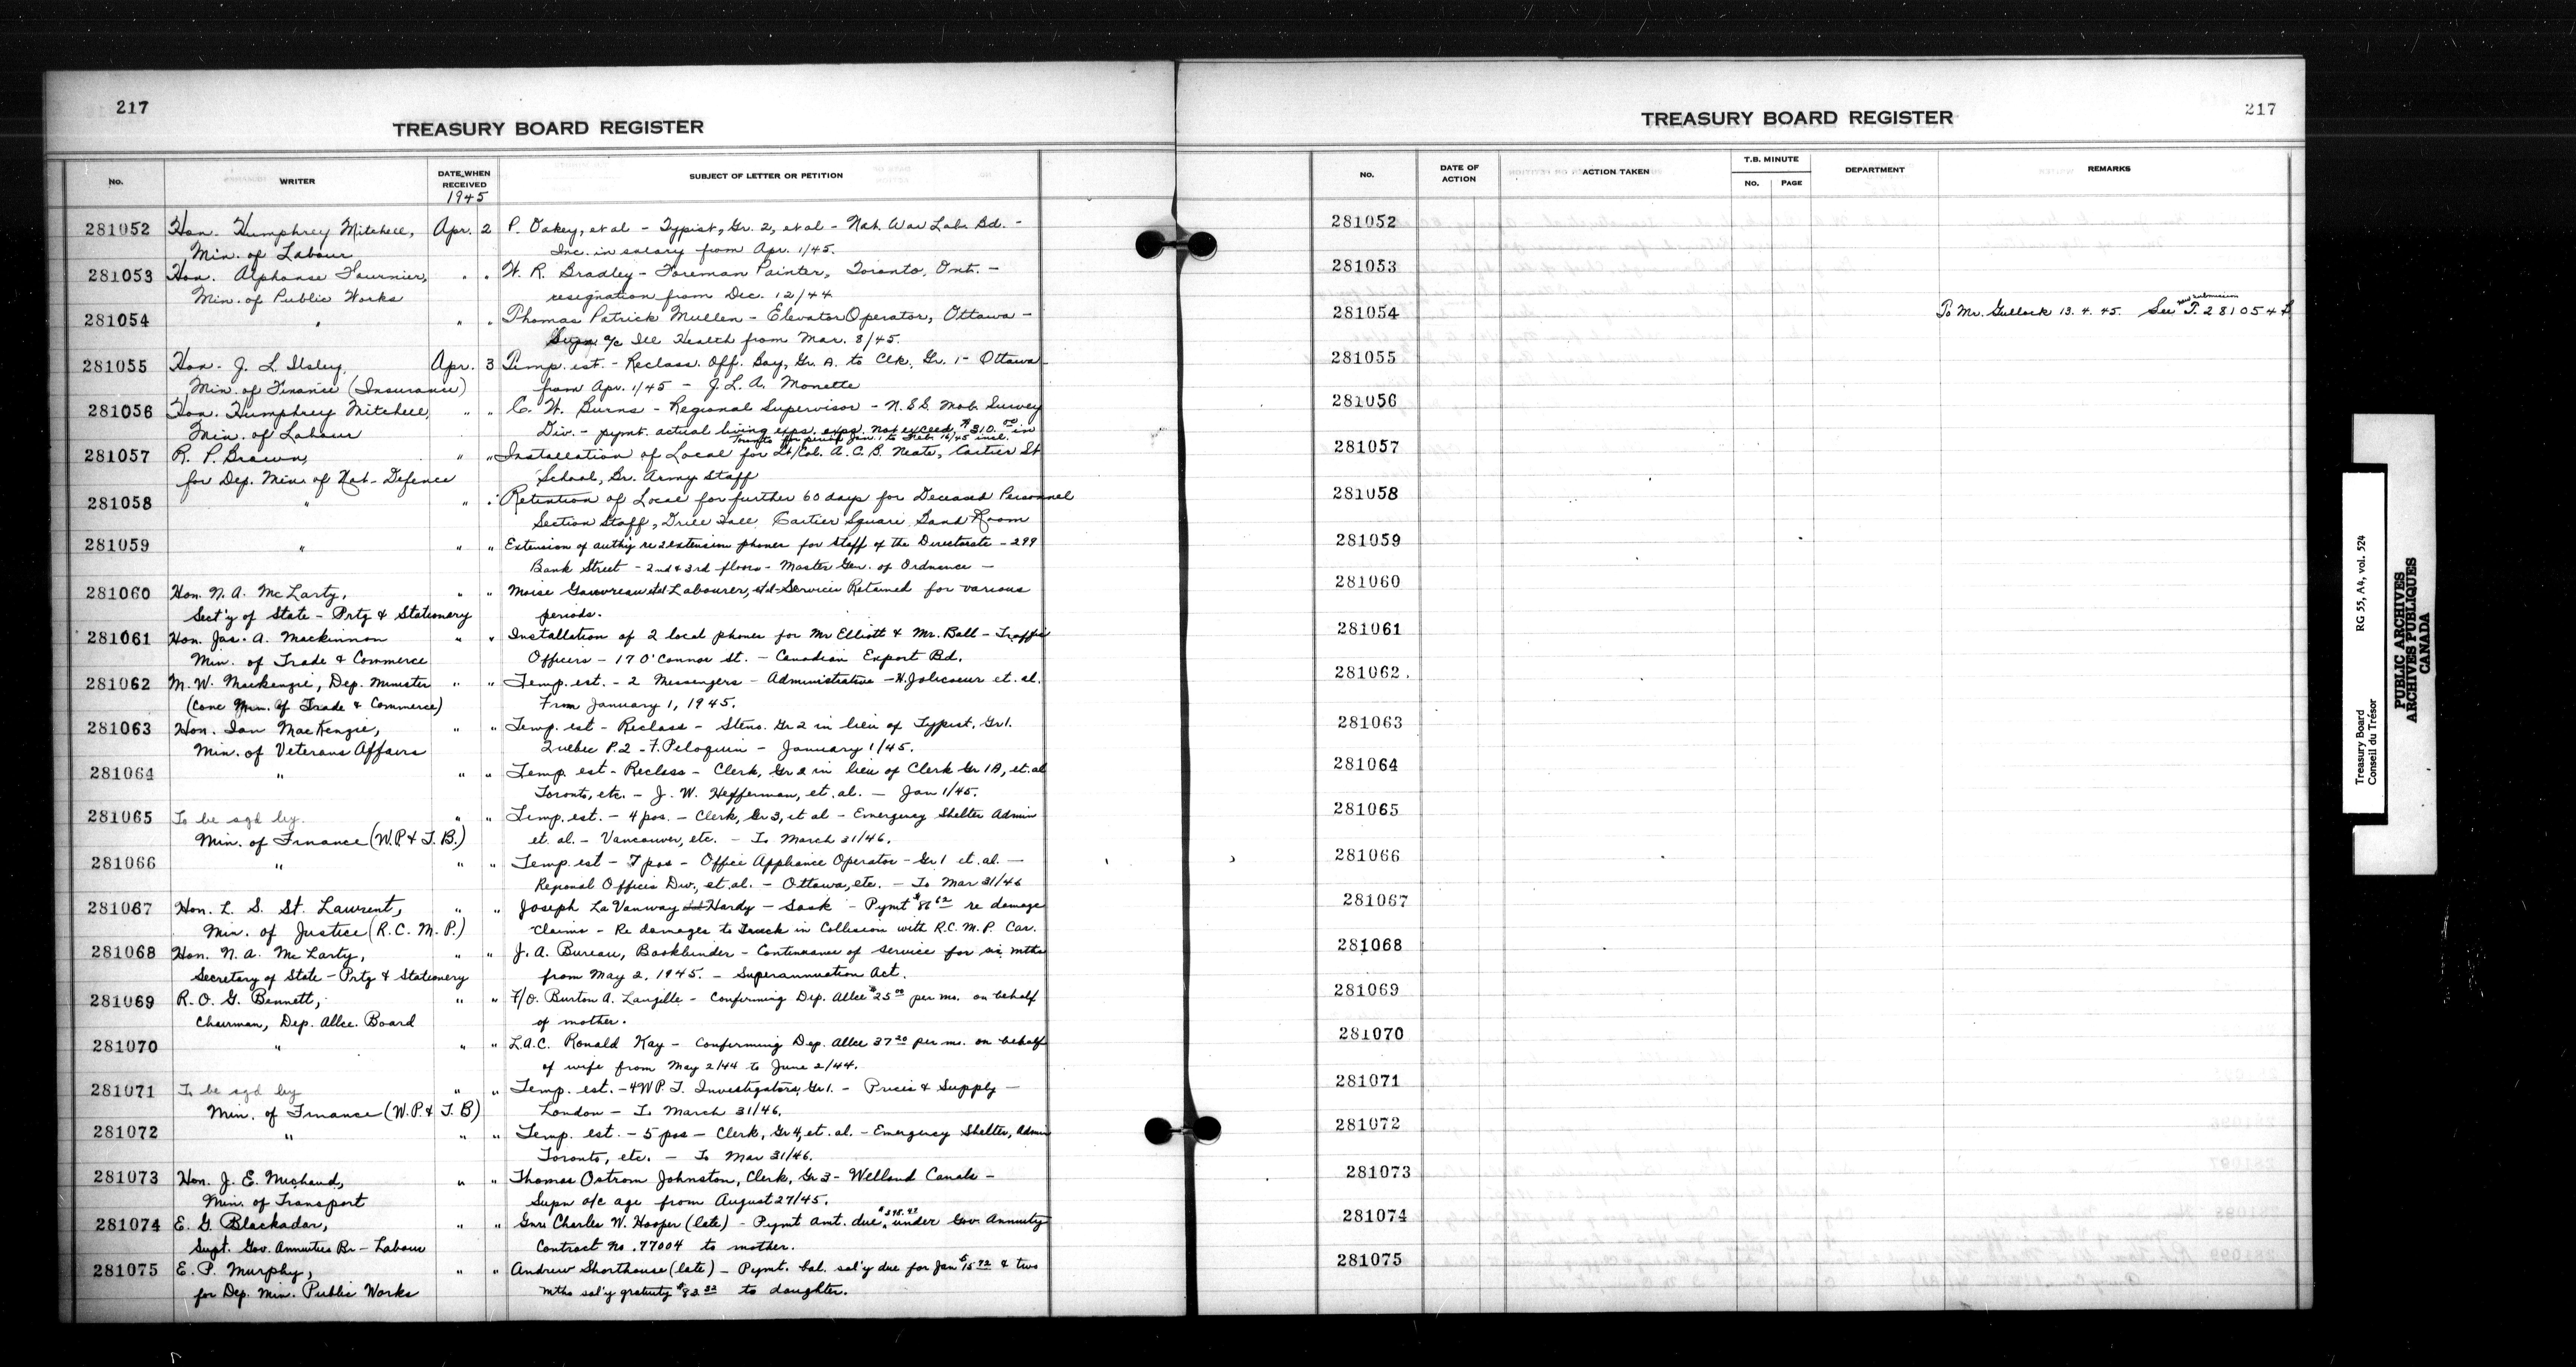 217
TREASURY BOARD REGISTER
No. WRITER DATE WHEN RECEIVED 1945 SUBJECT OF LETTER OR PETITION
281052 Hon. Humphrey Mitchell, Apr. 2 P. Oakey, et al - Typist, Gr. 2, et al - Nat. War Lab. Bd. -
Min. of Labour Inc. in salary from Apr. 1/45.
281053 Hon. Alphonse Fournier, " " W. R. Bradley - Foreman Painter, Toronto, Ont. -
Min. of Public Works resignation from Dec. 12/44
281054 " " " Thomas Patrick Mullen - Elevator Operator, Ottawa -
a/c Ill Health from Mar. 8/45.
281055 Hon. J. L. Ilsley, Apr. 3 Temp. est. - Reclass. Off. Boy, Gr. A. to Clk. Gr. 1 - Ottawa
Min. of Finance (Insurance) from Apr. 1/45 - J. L. A. Monette
281056 Hon. Humphrey Mitchell, " " C. W. Burns - Regional Supervisor - N.S.S. Mob. Survey
Min. of Labour Div. - pymt. actual living exps. exps. not exceed. $310.00 in
Toronto for period Jan. 1 to Feb. 16/45 incl.
281057 R. P. Brown, " " Installation of Local for Lt/Col. A. C. B. Neate, Cartier St
for Dep. Min. of Nat. Defence School, Br. Army Staff
281058 " " " Retention of Local for further 60 days for Deceased Personnel
Section Staff, Drill Hall, Cartier Square Band Room
281059 " " " Extension of auth'y re 2 extension phones for staff of the Directorate - 299
Bank Street - 2nd & 3rd floors - Master Gen. of Ordnance -
281060 Hon. N. A. McLarty, " " Moise Gauvreau et al Labourer, et al - Services Retained for various
Sect'y of State - Prtg & Stationery periods.
281061 Hon. Jas. A. Mackinnon " " Installation of 2 local phones for Mr Elliott & Mr. Ball - Traffic
Min. of Trade & Commerce Officers - 17 O'Connor St. - Canadian Export Bd.
281062 M. W. Mackenzie, Dep. Minister " " Temp. est. - 2 Messengers - Administrative - H. Jolicoeur et. al.
(Conc Min. of Trade & Commerce) From January 1, 1945.
281063 Hon. Ian MacKenzie, " " Temp. est - Reclass - Steno. Gr 2 in lieu of Typist, Gr 1.
Min. of Veterans Affairs Quebec P.Q. - F. Peloquin - January 1/45.
281064 " " " Temp. est - Reclass - Clerk, Gr 2 in lieu of Clerk Gr 1A, et. al
Toronto, etc. - J. W. Hefferman, et. al. - Jan 1/45.
281065 To be sgd by " " Temp. est. - 4 pos. - Clerk, Gr 3, et al - Emergency Shelter Admin
Min. of Finance (W.P. & T. B.) et. al. - Vancouver, etc. - To March 31/46.
281066 " " " Temp. est - 7 pos - Office Appliance Operator - Gr 1 et. al. -
Regional Offices Div., et. al. - Ottawa, etc. - To Mar 31/46
281067 Hon. L. S. St. Laurent, " " Joseph La Vanway Hardy - Sask - Pymt $86.62 re damage
Min. of Justice (R. C. M. P.) Claims - Re damages to Truck in Collision with R.C.M.P. Car.
281068 Hon. N. A. McLarty, " " J. A. Bureau, Bookbinder - Continuance of service for six mths
Secretary of State - Prtg & Stationery from May 2, 1945. - Superannuation Act.
281069 R. O. G. Bennett, " " F/O. Burton A. Langille - Confirming Dep. Allce $25.00 per mo. on behalf
Chairman, Dep. Allce. Board of mother.
281070 " " " L.A.C. Ronald Kay - Confirming Dep. Allce 37.20 per m. on behalf
of wife from May 2/44 to June 2/44.
281071 To be sgd by " " Temp. est. - 4 W.P.T. Investigators, Gr 1. - Prices & Supply -
Min. of Finance (W.P. & T. B) London - To March 31/46.
281072 " " " Temp. est. - 5 pos - Clerk, Gr 4, et. al. - Emergency Shelter, Admin
Toronto, etc. - To Mar 31/46.
281073 Hon. J. E. Michaud, " " Thomas Ostrom Johnston, Clerk, Gr 3 - Welland Canals -
Min. of Transport Supn a/c age from August 27/45.
281074 E. G. Blackadar, " " Gnr. Charles W. Hooper (late) - Pymt amt. due under Gov. Annuity
Supt. Gov. Annuities Br - Labour Contract No. 77004 to mother.
281075 E. P. Murphy, " " Andrew Shorthouse (late) - Pymt. bal. sal'y due for Jan & two
for Dep. Min. Public Works mths sal'y gratuity to daughter.
217
TREASURY BOARD REGISTER
No. DATE OF ACTION ACTION TAKEN T.B. MINUTE NO. PAGE DEPARTMENT REMARKS
281052
281053
281054 To Mr. Gullock 13. 4. 45. See new submission T. 281054
281055
281056
281057
281058
281059
281060
281061
281062
281063
281064
281065
281066
281067
281068
281069
281070
281071
281072
281073
281074
281075
Treasury Board
Conseil du Trésor
RG 55, A4, vol. 524
PUBLIC ARCHIVES
ARCHIVES PUBLIQUES
CANADA